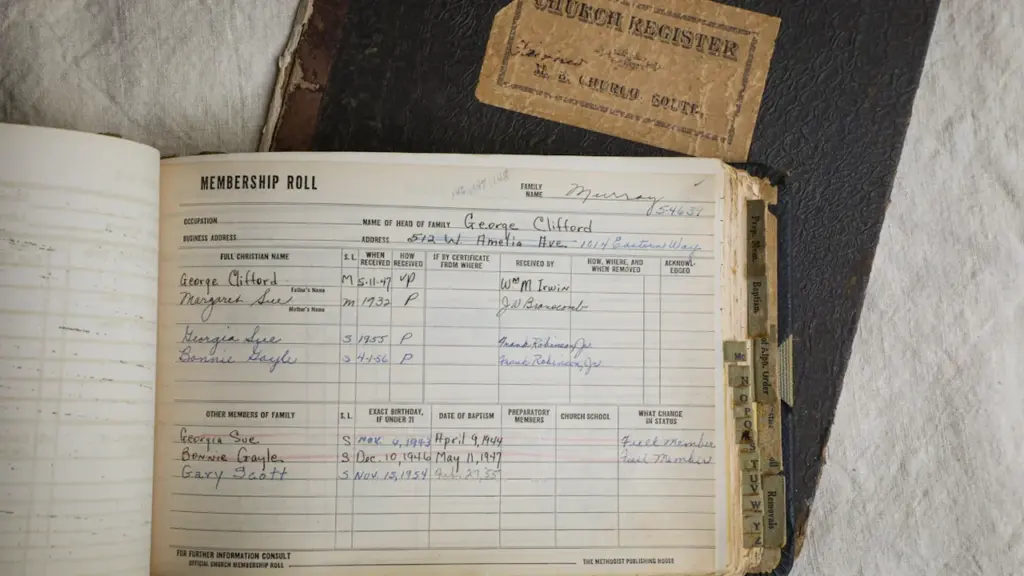 CHURCH REGISTER
M. E. CHURCH, SOUTH.
MEMBERSHIP ROLL
FAMILY NAME Murray
54637
OCCUPATION NAME OF HEAD OF FAMILY George Clifford
BUSINESS ADDRESS ADDRESS 512 W. Amelia Ave. - 1014 Eastern Way
FULL CHRISTIAN NAME S. L. WHEN RECEIVED HOW RECEIVED IF BY CERTIFICATE FROM WHERE RECEIVED BY HOW, WHERE, AND WHEN REMOVED ACKNOWL-EDGED
George Clifford M 5-11-47 VP Wm M Irwin
Father's Name
Margaret Sue M 1932 P J. W. Branscomb
Mother's Name
Georgia Sue S 1955 P Frank Robinson, Jr.
Bonnie Gayle S 4-1-56 P Frank Robinson, Jr.
OTHER MEMBERS OF FAMILY S. L. EXACT BIRTHDAY, IF UNDER 21 DATE OF BAPTISM PREPARATORY MEMBERS CHURCH SCHOOL WHAT CHANGE IN STATUS
Georgia Sue S Nov. 4, 1943 April 9, 1944 Full Member
Bonnie Gayle S Dec. 10, 1946 May 11, 1947 Full Member
Gary Scott S Nov. 12, 1954 Feb. 27, 55
FOR FURTHER INFORMATION CONSULT
OFFICIAL CHURCH MEMBERSHIP ROLL THE METHODIST PUBLISHING HOUSE
Prep. Mem.
Baptism
of Alph. Order
Mc
N
O
P
Removals
T
U V
W
Y
Z